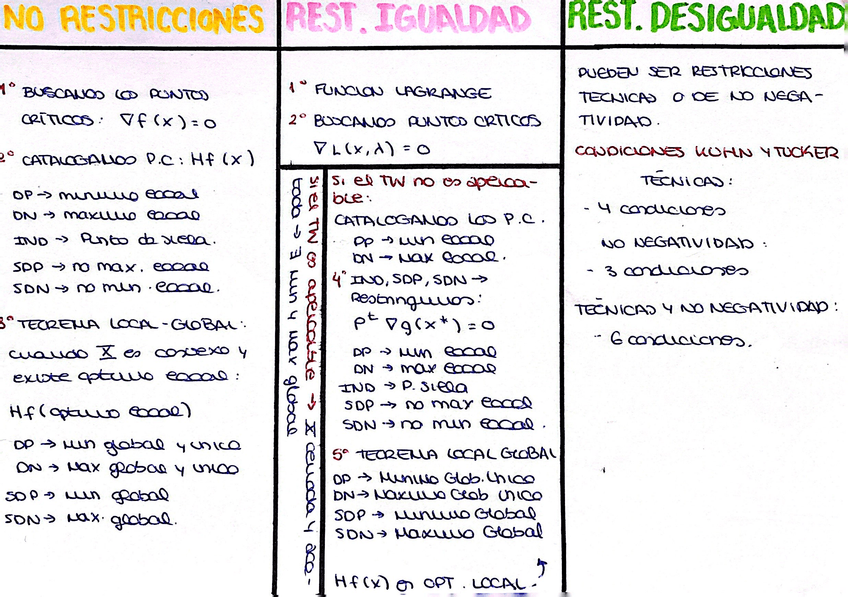 NO RESTRICCIONES
1º BUSCAMOS LOS PUNTOS
CRÍTICOS: ∇f(x)=0
2º CATALOGAMOS P.C: Hf(x)
DP → minimo local
DN → maximo local
IND → Punto de silla.
SDP → no max. local
SDN → no min. local.
3º TEOREMA LOCAL-GLOBAL:
cuando X es convexo y
existe optimo local:
Hf(optimo local)
DP → Min global y unico
DN → Max global y unico
SDP → Min global
SDN → Max. global.
REST. IGUALDAD
1º FUNCION LAGRANGE
2º BUSCAMOS PUNTOS CRITICOS
∇L(x,λ) = 0
Si el TW es aplicable → X cerrada y aco-
tada → ∃ Min y Max globales
Si el TW no es aplica-
ble:
CATALOGAMOS LOS P.C.
DP → Min local
DN → Max local.
4º IND, SDP, SDN →
Restringimos:
Pᵗ ∇g(x*) = 0
DP → Min local
DN → max local
IND → P. Silla
SDP → no max local
SDN → no min local.
5º TEOREMA LOCAL GLOBAL
DP → Minimo Glob. Unico
DN → Maximo Glob Unico
SDP → Minimo Global
SDN → Maximo Global
Hf(x) en OPT. LOCAL
REST. DESIGUALDAD
PUEDEN SER RESTRICCIONES
TECNICAS O DE NO NEGA-
TIVIDAD.
CONDICIONES KUHN Y TUCKER
TÉCNICAS:
- 4 condiciones
NO NEGATIVIDAD:
- 3 condiciones
TÉCNICAS Y NO NEGATIVIDAD:
- 6 condiciones.